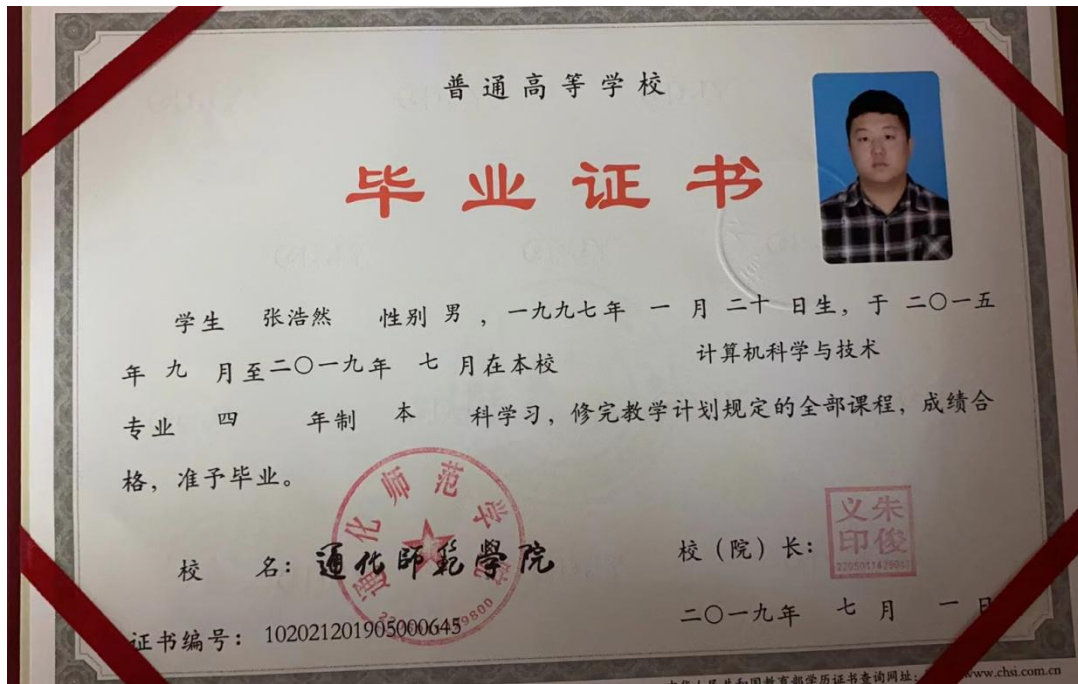 普通高等学校
毕业证书
学生 张浩然 性别 男 ，一九九七年 一 月 二十 日生，于 二〇一五
年 九 月至二〇一九年 七 月在本校 计算机科学与技术
专业 四 年制 本 科学习，修完教学计划规定的全部课程，成绩合
格，准予毕业。
通化师范学院
校 名：通化師範學院
校（院）长：
朱俊义印
证书编号：102021201905000645
二〇一九年 七 月 一 日
民共和国教育部学历证书查询网址：
www.chsi.com.cn